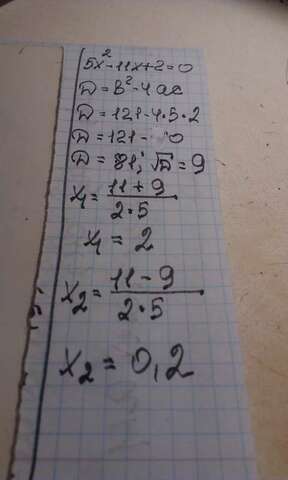 5x²-11x+2=0
D=b²-4ac
D=121-4·5·2
D=121-  0
D=81; √D=9
x₁=(11+9)/(2·5)
x₁=2
x₂=(11-9)/(2·5)
x₂=0,2